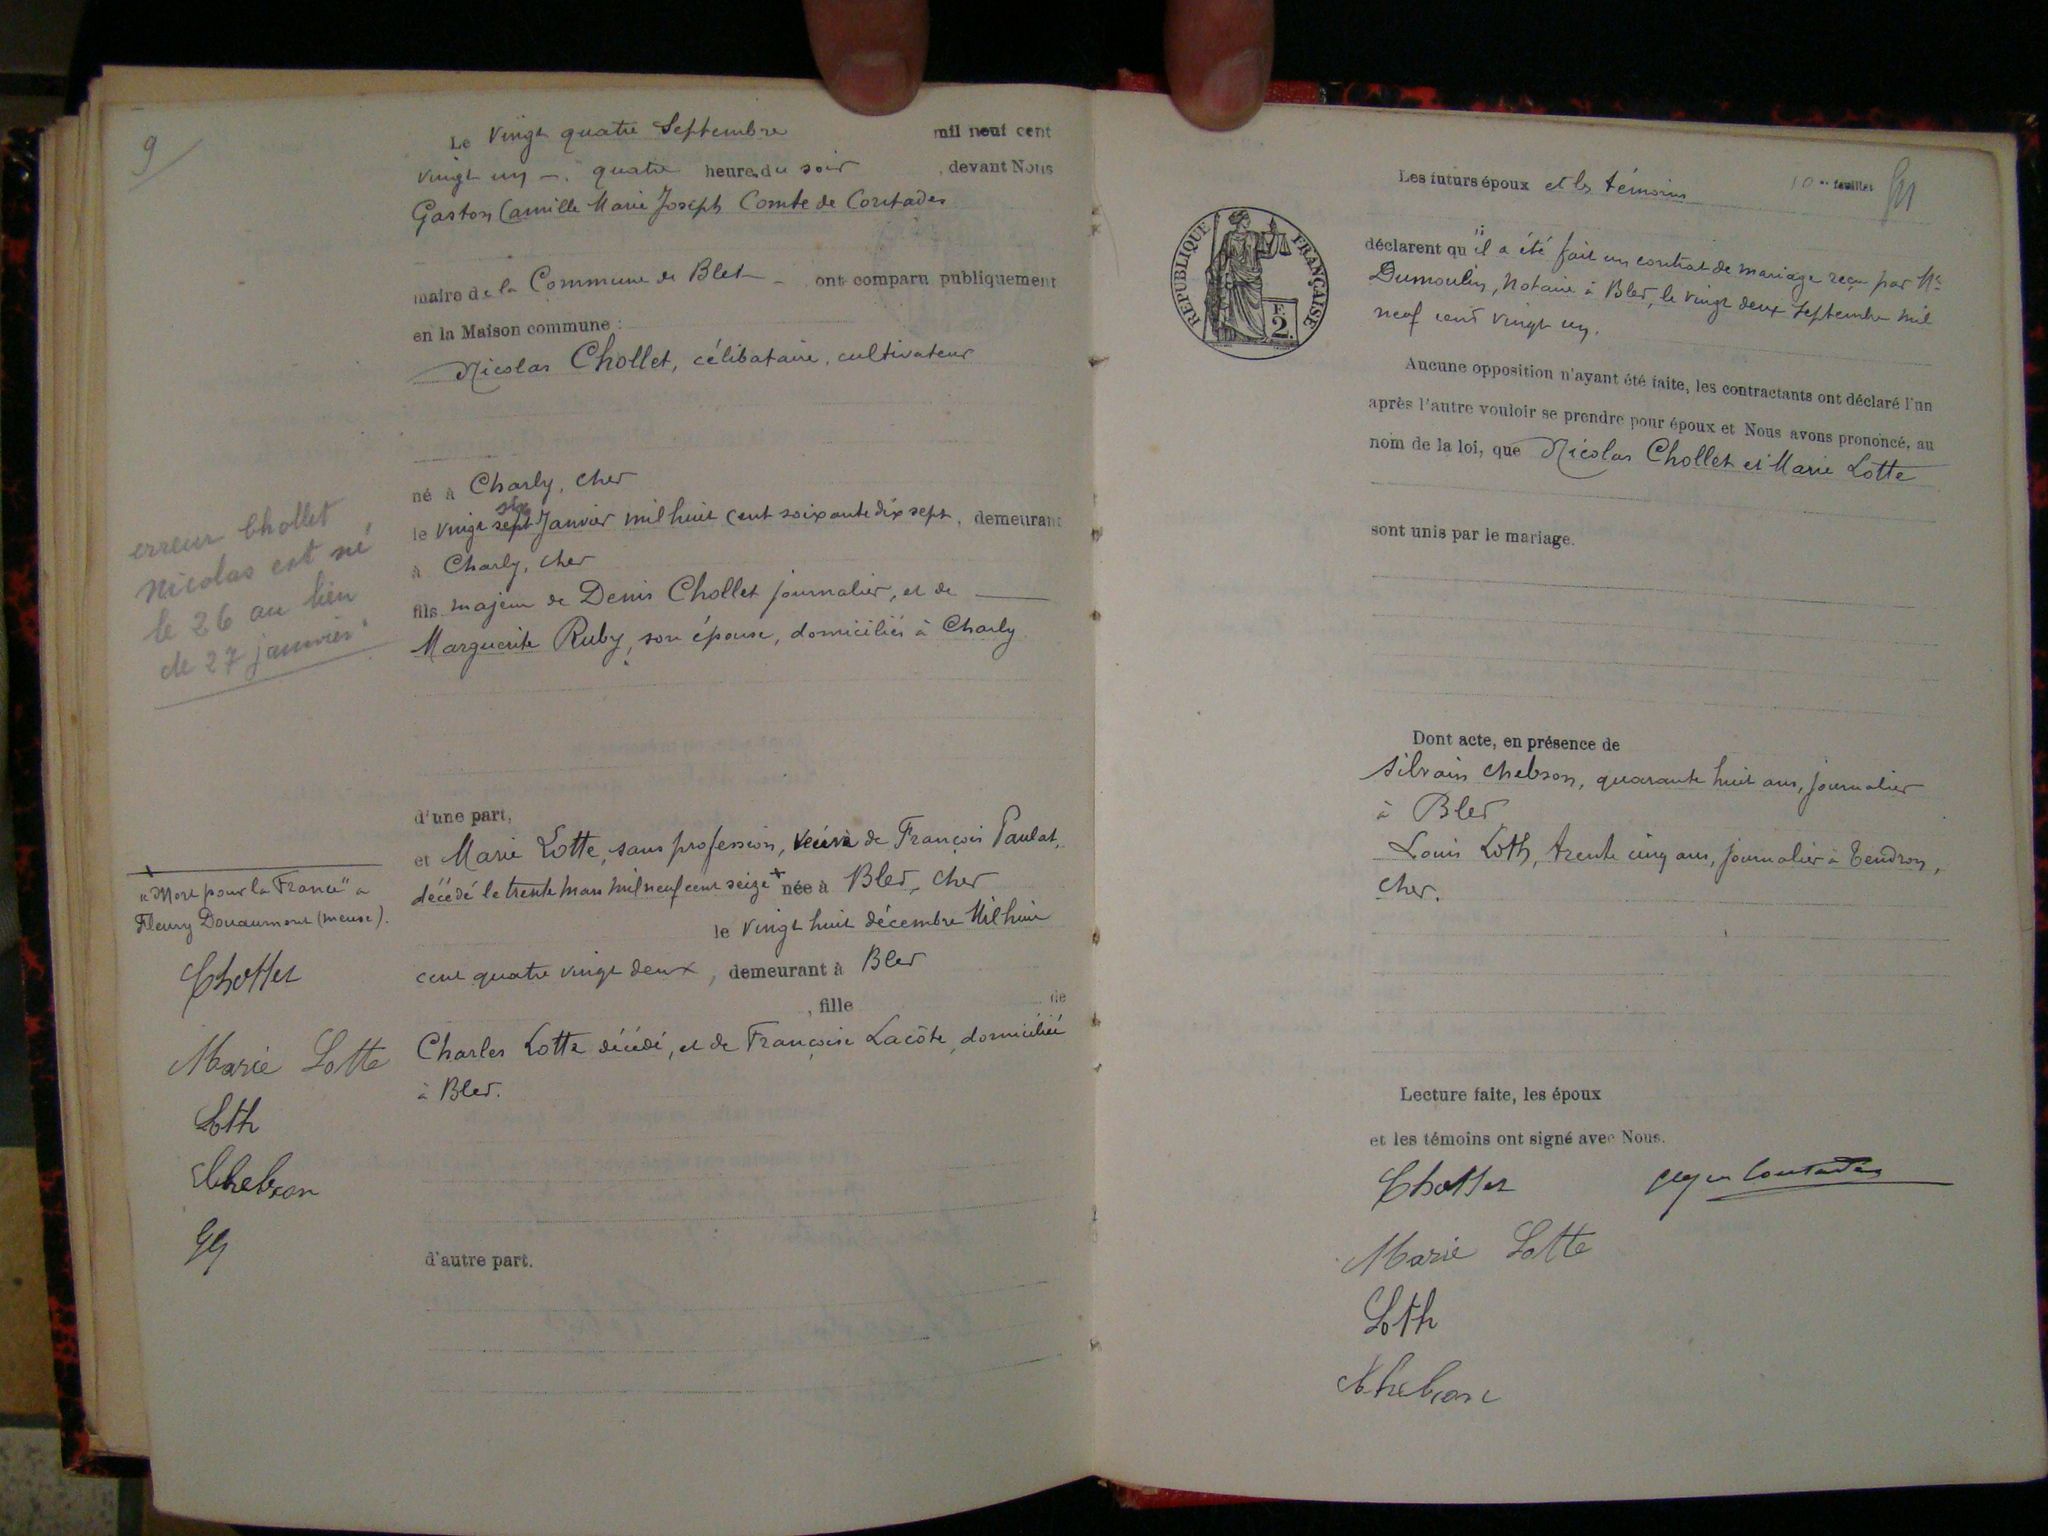 9
Le vingt quatre Septembre mil neuf cent
vingt un, quatre heures du soir, devant Nous
Gaston Camille Marie Joseph Comte de Contades
maire de la Commune de Blet ont comparu publiquement
en la Maison commune :
Nicolas Chollet, célibataire, cultivateur
né à Charly, Cher
six
le vingt sept Janvier mil huit cent soixante dix sept, demeurant
à Charly, Cher
fils majeur de Denis Chollet journalier, et de
Marguerite Ruby, son épouse, domiciliés à Charly
erreur Chollet
Nicolas est né
le 26 au lieu
de 27 janvier
d'une part,
et Marie Lotte, sans profession, veuve de François Paulat,
décédé le trente mars mil neuf cent seize + née à Blet, Cher
le vingt huit décembre Mil huit
cent quatre vingt deux, demeurant à Blet
, fille de
Charles Lotte décédé, et de Françoise Lacôte, domiciliée
à Blet.
d'autre part.
+
"Mort pour la France" à
Fleury Douaumont (Meuse).
Chollet
Marie Lotte
Loth
Chebson
Les futurs époux et les témoins
10me feuillet
RÉPUBLIQUE FRANÇAISE
F.
2.
déclarent qu'il a été fait un contrat de mariage reçu par Me
Dumoulin, Notaire à Blet, le vingt deux Septembre mil
neuf cent vingt un.
Aucune opposition n'ayant été faite, les contractants ont déclaré l'un
après l'autre vouloir se prendre pour époux et Nous avons prononcé, au
nom de la loi, que Nicolas Chollet et Marie Lotte
sont unis par le mariage.
Dont acte, en présence de
Silvain Chebson, quarante huit ans, journalier
à Blet
Louis Loth, trente cinq ans, journalier à Tendron,
Cher.
Lecture faite, les époux
et les témoins ont signé avec Nous.
Chollet
Contades
Marie Lotte
Loth
Chebson